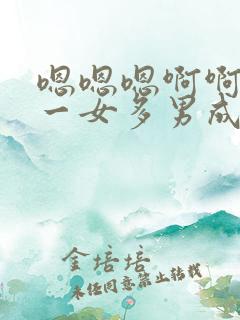 嗯嗯嗯啊啊
一女多男成
金培培
未经同意禁止转载